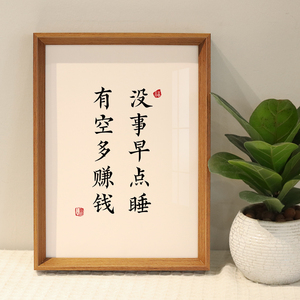 没事早点睡
有空多赚钱